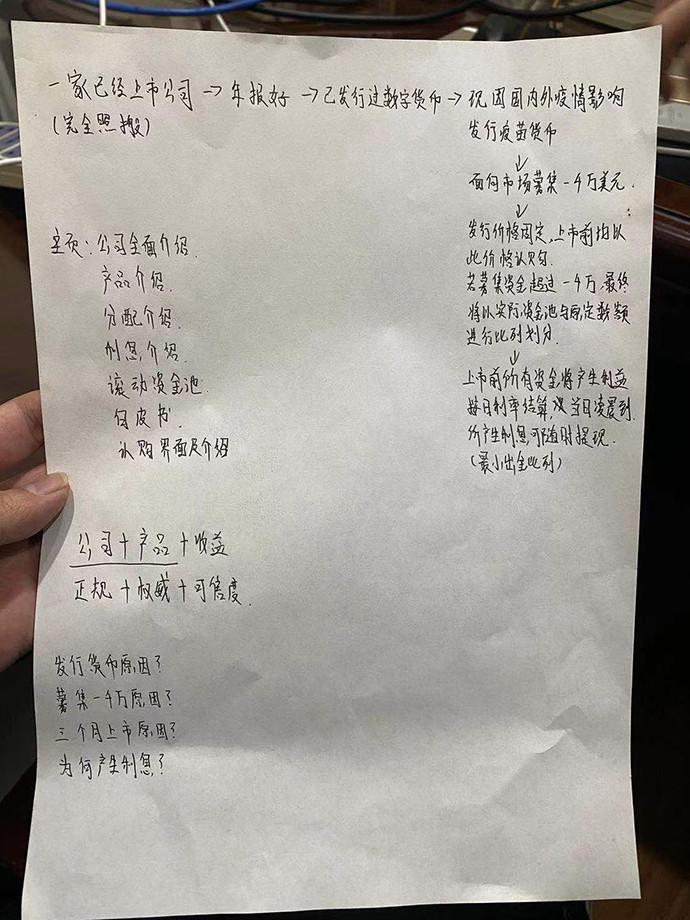 一家已经上市公司→年报好→已发行过数字货币→现因国内外疫情影响
(完全照搬)
发行疫苗货币
↓
面向市场募集一千万美元.
↓
发行价格固定,上市前均以
此价格认购.
若募集资金超过一千万.最终
将以实际资金池与原定数额
进行比列划分.
↓
上市前所有资金将产生利益
按日利率结算,次当日凌晨到.
所产生利息,可随时提现.
(最小出金比列)
主页:公司全面介绍.
产品介绍.
分配介绍.
利息,介绍.
滚动资金池.
白皮书.
认购界面及介绍
公司+产品+收益
正规+权威+可信度.
发行货币原因?
募集一千万原因?
三个月上市原因?
为何产生利息?